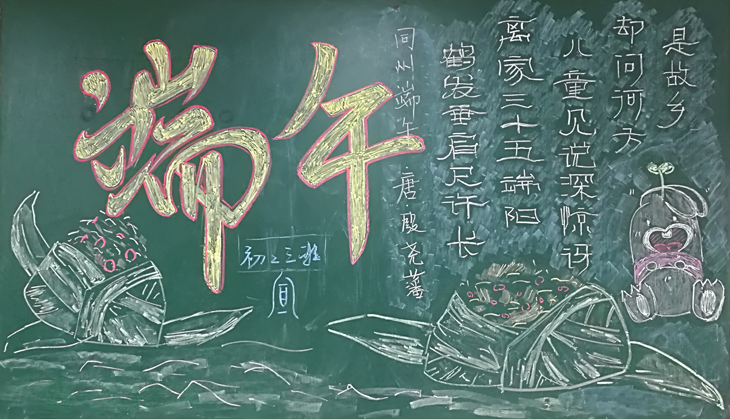 端午
同州端午 唐 殷尧藩
鹤发垂肩尺许长
离家三十五端阳
儿童见说深惊讶
却问河方
是故乡
初2三班